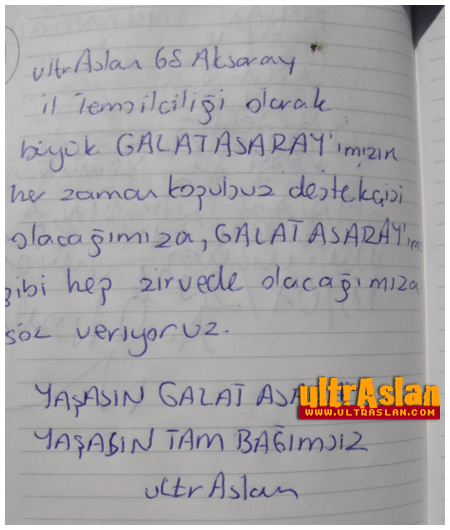 ultrAslan 68 Aksaray
il Temsilciliği olarak
büyük GALATASARAY'ımızın
her zaman koşulsuz destekçisi
olacağımıza, GALATASARAY'ım
gibi hep zirvede olacağımıza
söz veriyoruz.
YAŞASIN GALATASA
YAŞASIN TAM BAĞIMSIZ
ultrAslan
ultrAslan
WWW.ULTRASLAN.COM